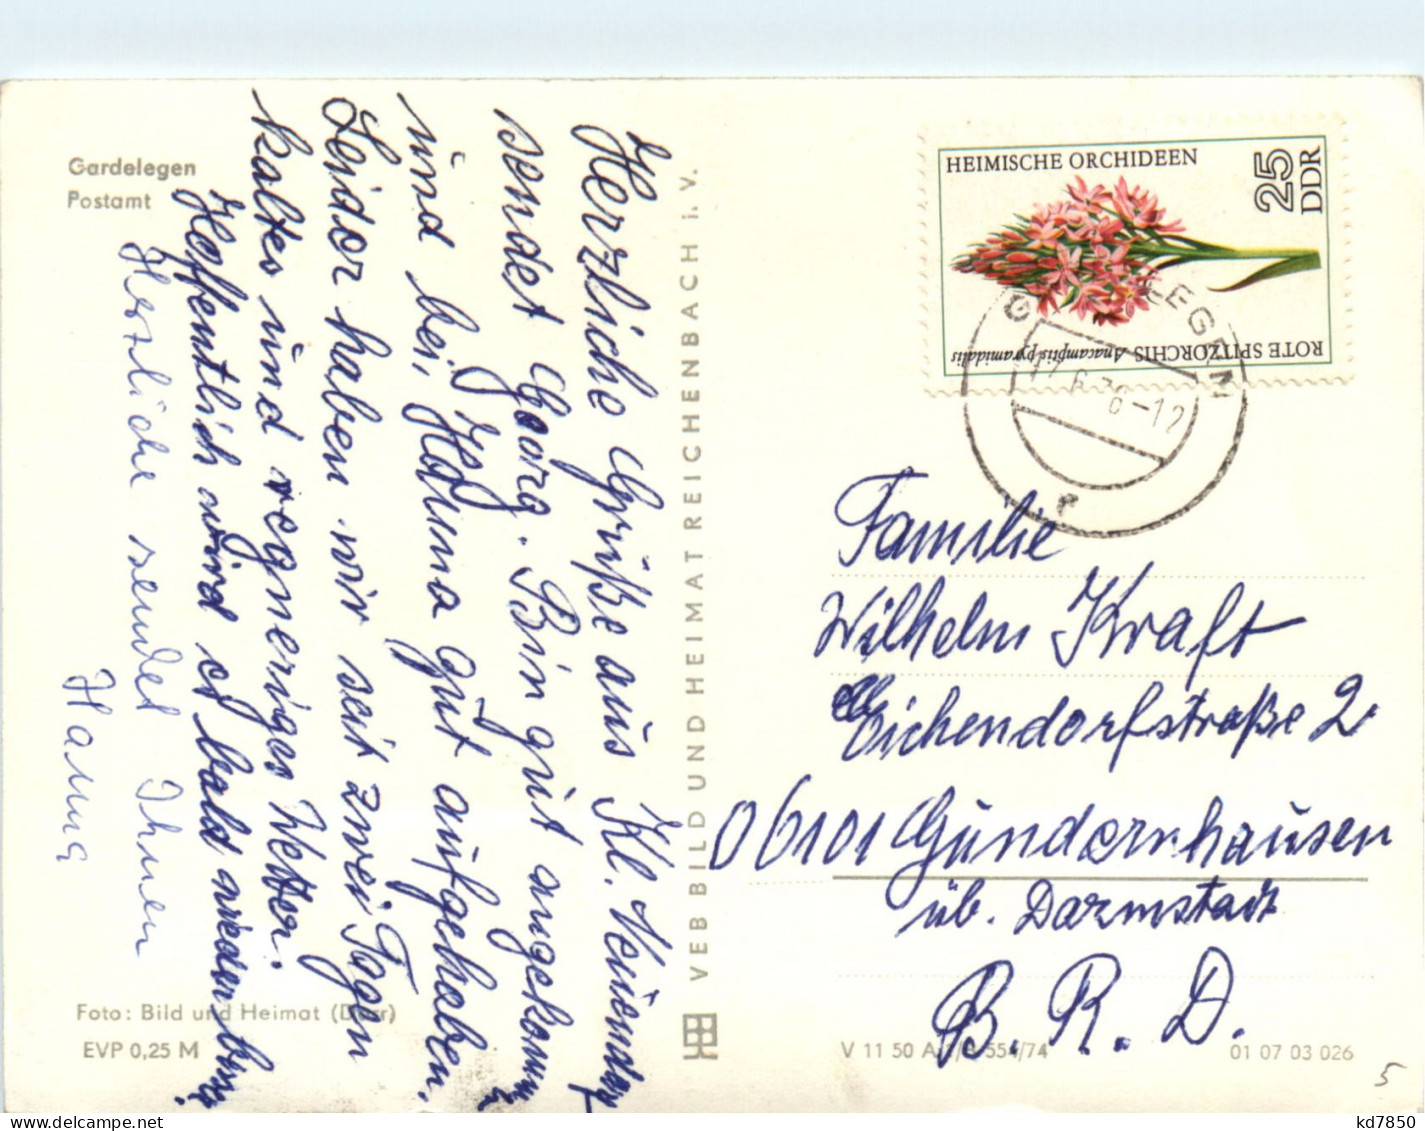 Gardelegen
Postamt
Herzliche Grüße aus Kl. Neuendorf
sendet Georg. Bin gut angekommen
und bei Hanna gut aufgehoben.
Leider haben wir seit zwei Tagen
kaltes und regneriges Wetter.
Hoffentlich wird es bald wieder
Herzliche sendet Ihnen
Hanna
Foto: Bild und Heimat (Darr)
EVP 0,25 M
VEB BILD UND HEIMAT REICHENBACH i. V.
HEIMISCHE ORCHIDEEN
25
DDR
ROTE SPITZORCHIS Anacamptis pyramidalis
17.6.76-12
Familie
Wilhelm Kraft
Eichendorfstraße 2
06101 Gundernhausen
üb. Darmstadt
B. R. D.
V 11 50 554/74
01 07 03 026
5
kd7850